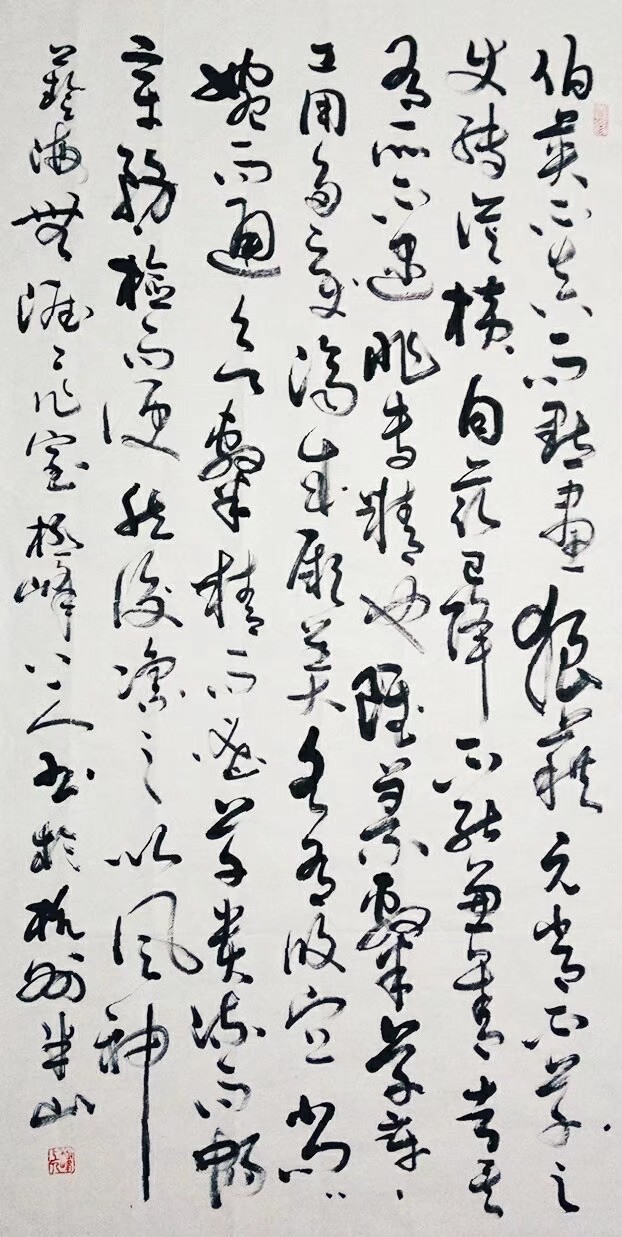 伯英不真而點畫狼藉元常不草之
使轉從橫自茲已降不能兼善者
有所不逮非專精也雖篆隸草章
工用多變濟成厥美各有攸宜尚
婉而通隸精而密草貴流而暢
章務檢而便然後凜之以風神
藝海無涯工作室極峰人書於杭州半山